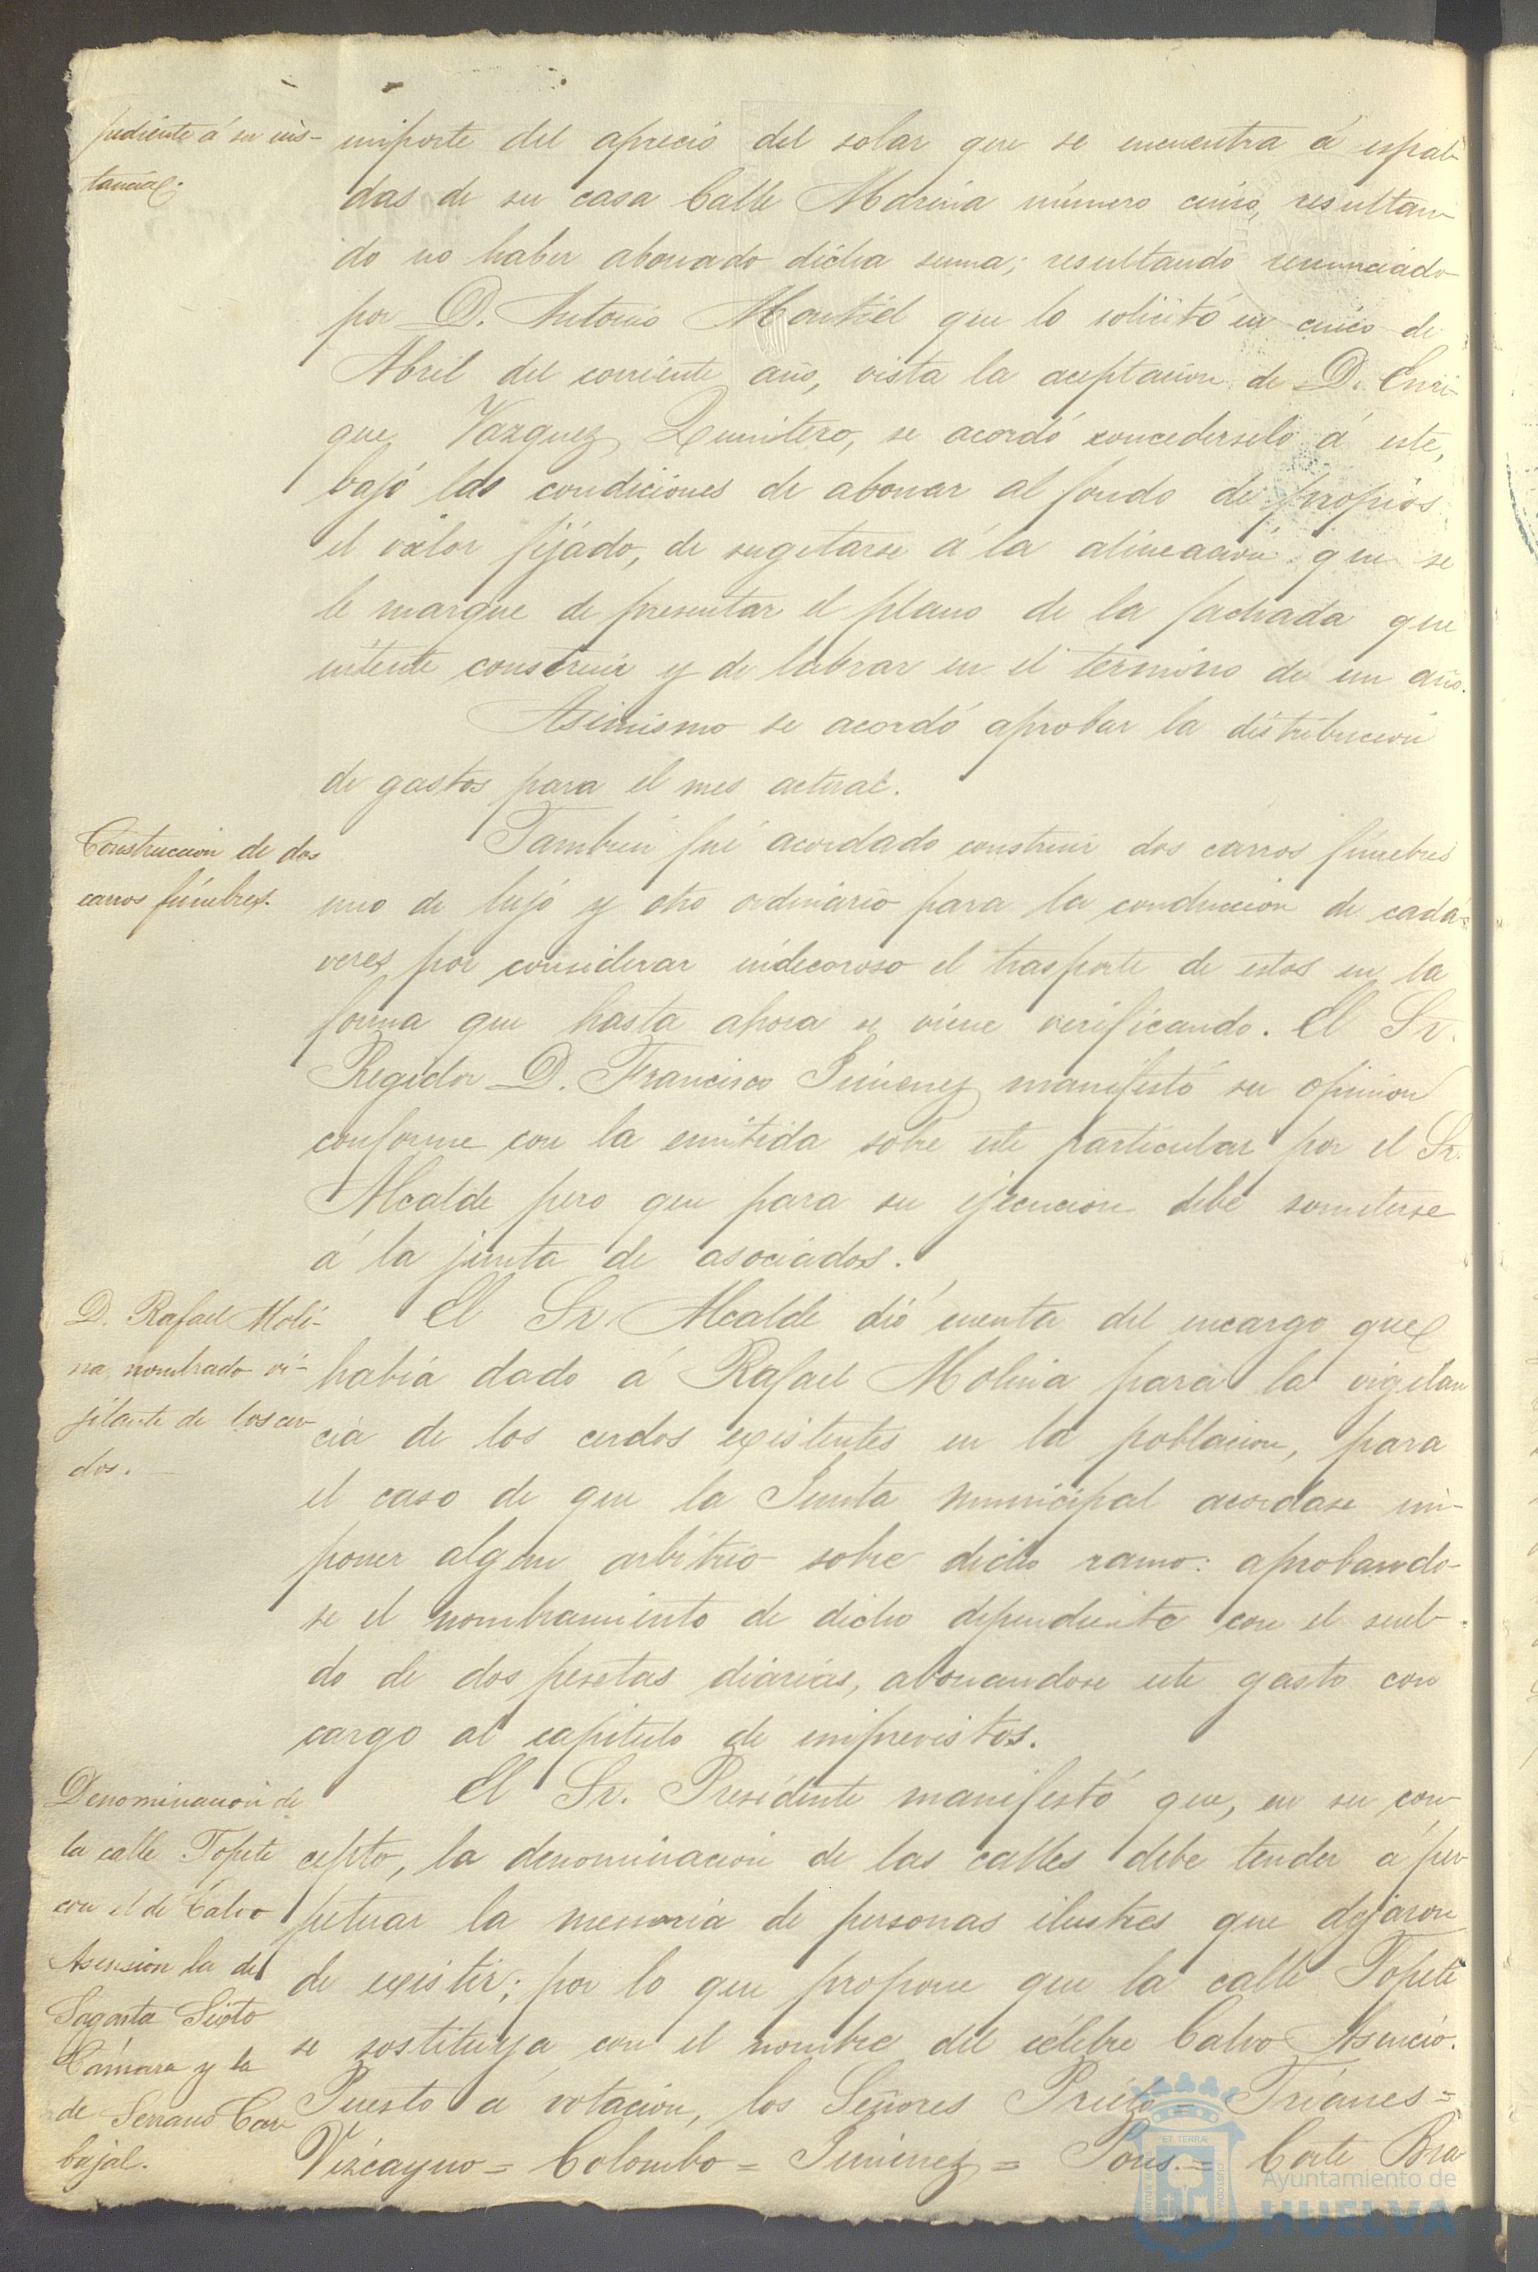 pediente á su ins-
tancia.
importe del aprecio del solar que se encuentra á espal-
das de su casa Calle Marina número cinco, resultan-
do no haber abonado dicha suma; resultando renunciado
por D. Antonio Montiel que lo solicitó en cinco de
Abril del corriente año, vista la aceptacion de D. Enri-
que Vazquez Quintero, se acordó concederselo á este,
bajo las condiciones de abonar al fondo de propios
el valor fijado, de sugetarse á la alineacion que se
le marque de presentar el plano de la fachada que
intente construir y de labrar en el termino de un año.
Asimismo se acordó aprobar la distribucion
de gastos para el mes actual.
Construccion de dos
carros fúnebres.
Tambien fué acordado construir dos carros fúnebres
uno de lujo y otro ordinario para la conduccion de cadá-
veres por considerar indecoroso el trasporte de estos en la
forma que hasta ahora se viene verificando. El Sr.
Regidor D. Francisco Jimenez manifestó su opinion
conforme con la emitida sobre este particular por el Sr.
Alcalde pero que para su ejecucion debe someterse
á la junta de asociados.
D. Rafael Moli-
na, nombrado vi-
jilante de los cer-
dos.
El Sr. Alcalde dió cuenta del encargo que
habia dado á Rafael Molina para la vigilan
cia de los cerdos existentes en la poblacion, para
el caso de que la Junta municipal acordase im-
poner algun arbitrio sobre dicho ramo: aprobando-
se el nombramiento de dicho dependiente con el suel-
do de dos pesetas diarias, abonandose este gasto con
cargo al capitulo de imprevistos.
Denominacion de
la calle Topete
con el de Calvo
Asension la de
Sagasta Sixto
Cámara y la
de Serrano Car
bajal.
El Sr. Presidente manifestó que, en su con-
cepto, la denominacion de las calles debe tender á per
petuar la memoria de personas ilustres que dejaron
de existir; por lo que propone que la calle Topete
se sostituya con el nombre del célebre Calvo Asencio.
Puesto á votacion, los Señores Prieto = Trianes =
Vizcayno = Colombo = Jimenez = Pons = Corte Bra
ET TERRÆ
Ayuntamiento de
HUELVA